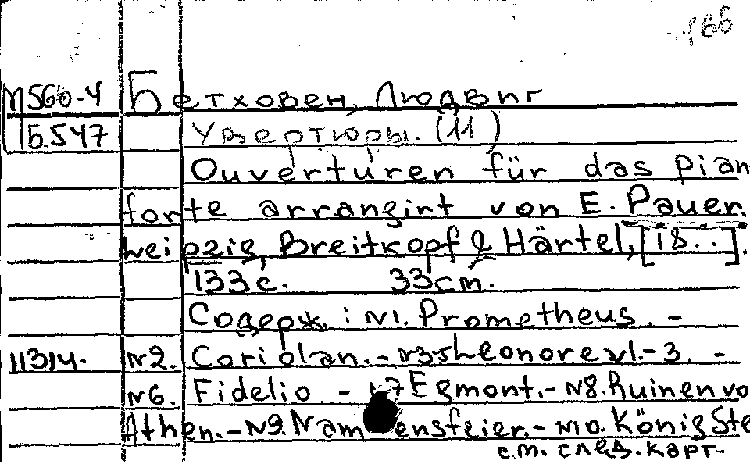 166
М560-4 Бетховен, Людвиг
Б547 Увертюры. (11)
Ouverturen für das pian
forte arrangirt von E. Pauer.
Leipzig, Breitkopf & Härtel, [18..].
133 с. 33 cm.
Содерж. : N1. Prometheus. -
11314. N2. Coriolan. - N3-5 Leonore N1.-3. -
N6. Fidelio - N7 Egmont. - N8. Ruinen vo
Athen. - N9. Namensfeier. - N10. König Ste
с.m. след. карт.